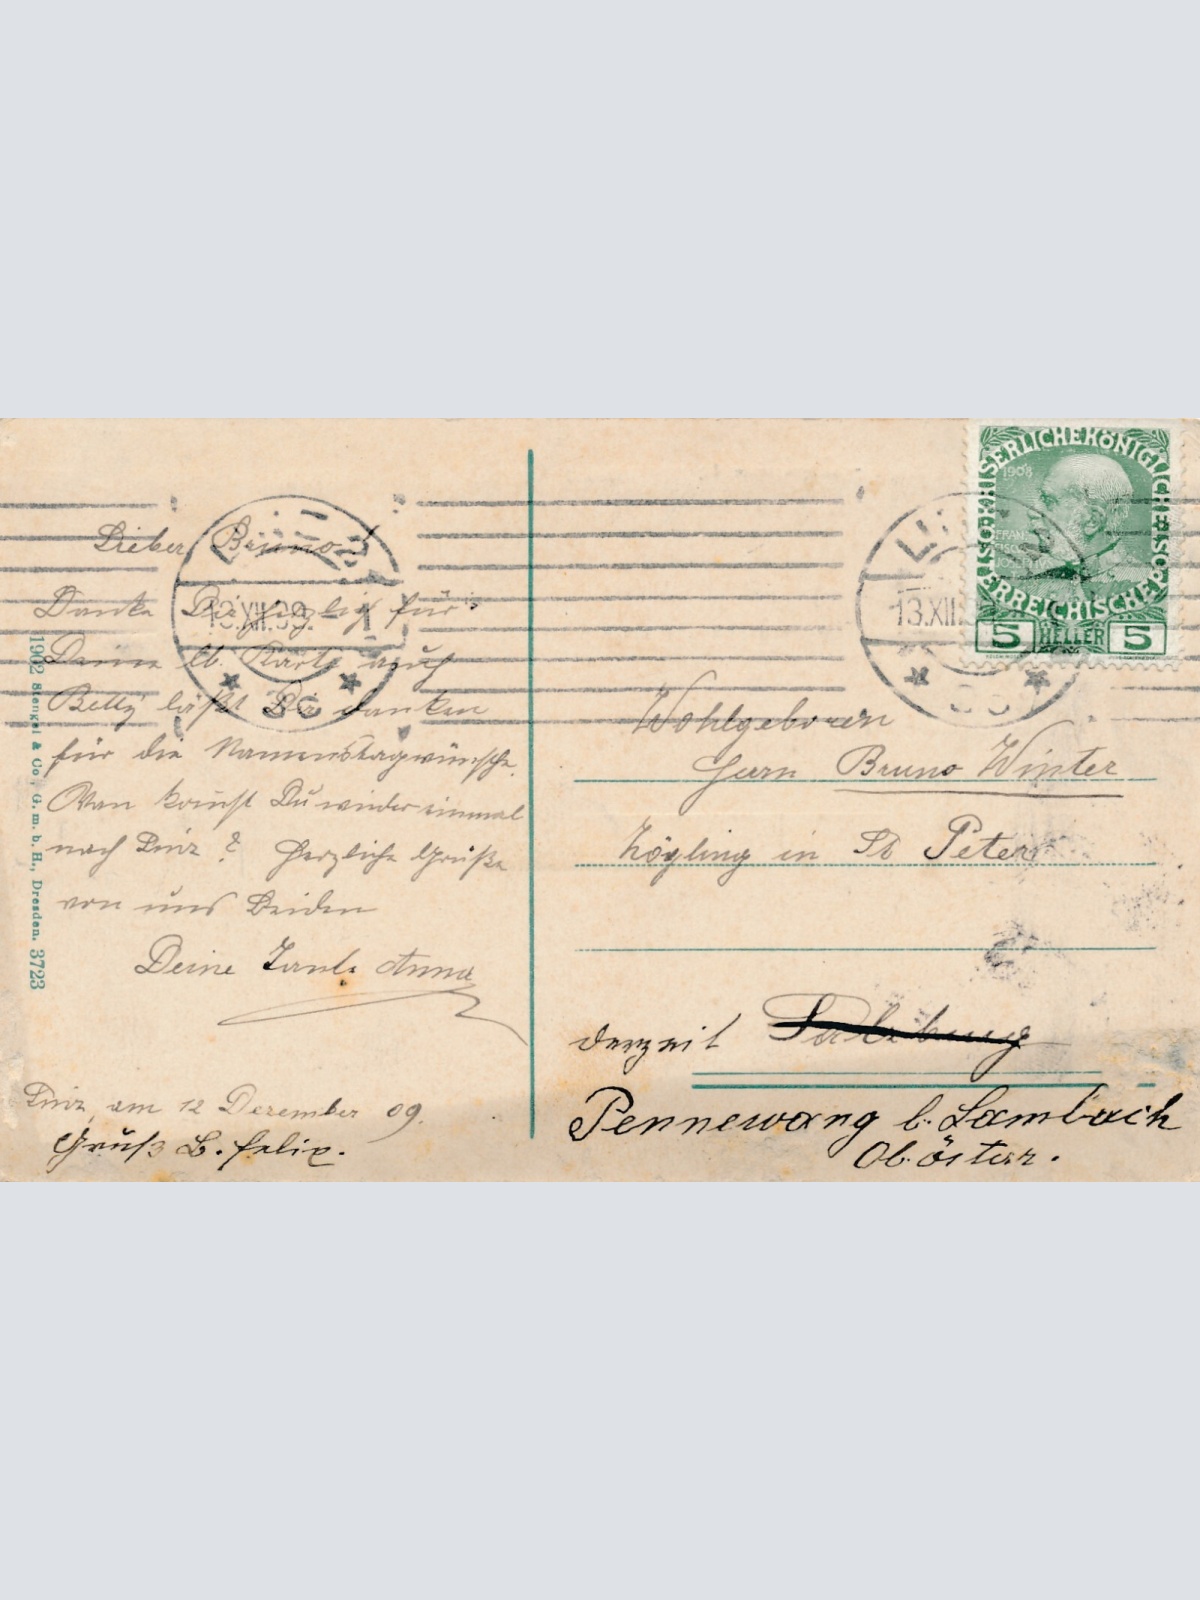 Lieber Bruno!
Danke Dir herzlich für
Deine lb. Karte auch
Betty läßt Dir danken
für die Namenstagwünsche.
Wan komst Du wieder einmal
nach Linz? Herzliche Grüße
von uns Beiden
Deine Tante Anna
Linz, am 12 Dezember 09.
Gruß B. Felix.
1902 Stengel & Co., G. m. b. H., Dresden. 3723
LINZ
13.XII.09.-1
LINZ
13.XII.
KAISERLICHEKÖNIGLICHE ÖSTERREICHISCHE POST
1908
FRANZ
JOSEF
5 HELLER 5
Wohlgeboren
Herrn Bruno Winter
Zögling in St Peter
derzeit Salzburg
Pennewang b. Lambach
Ob. öster.